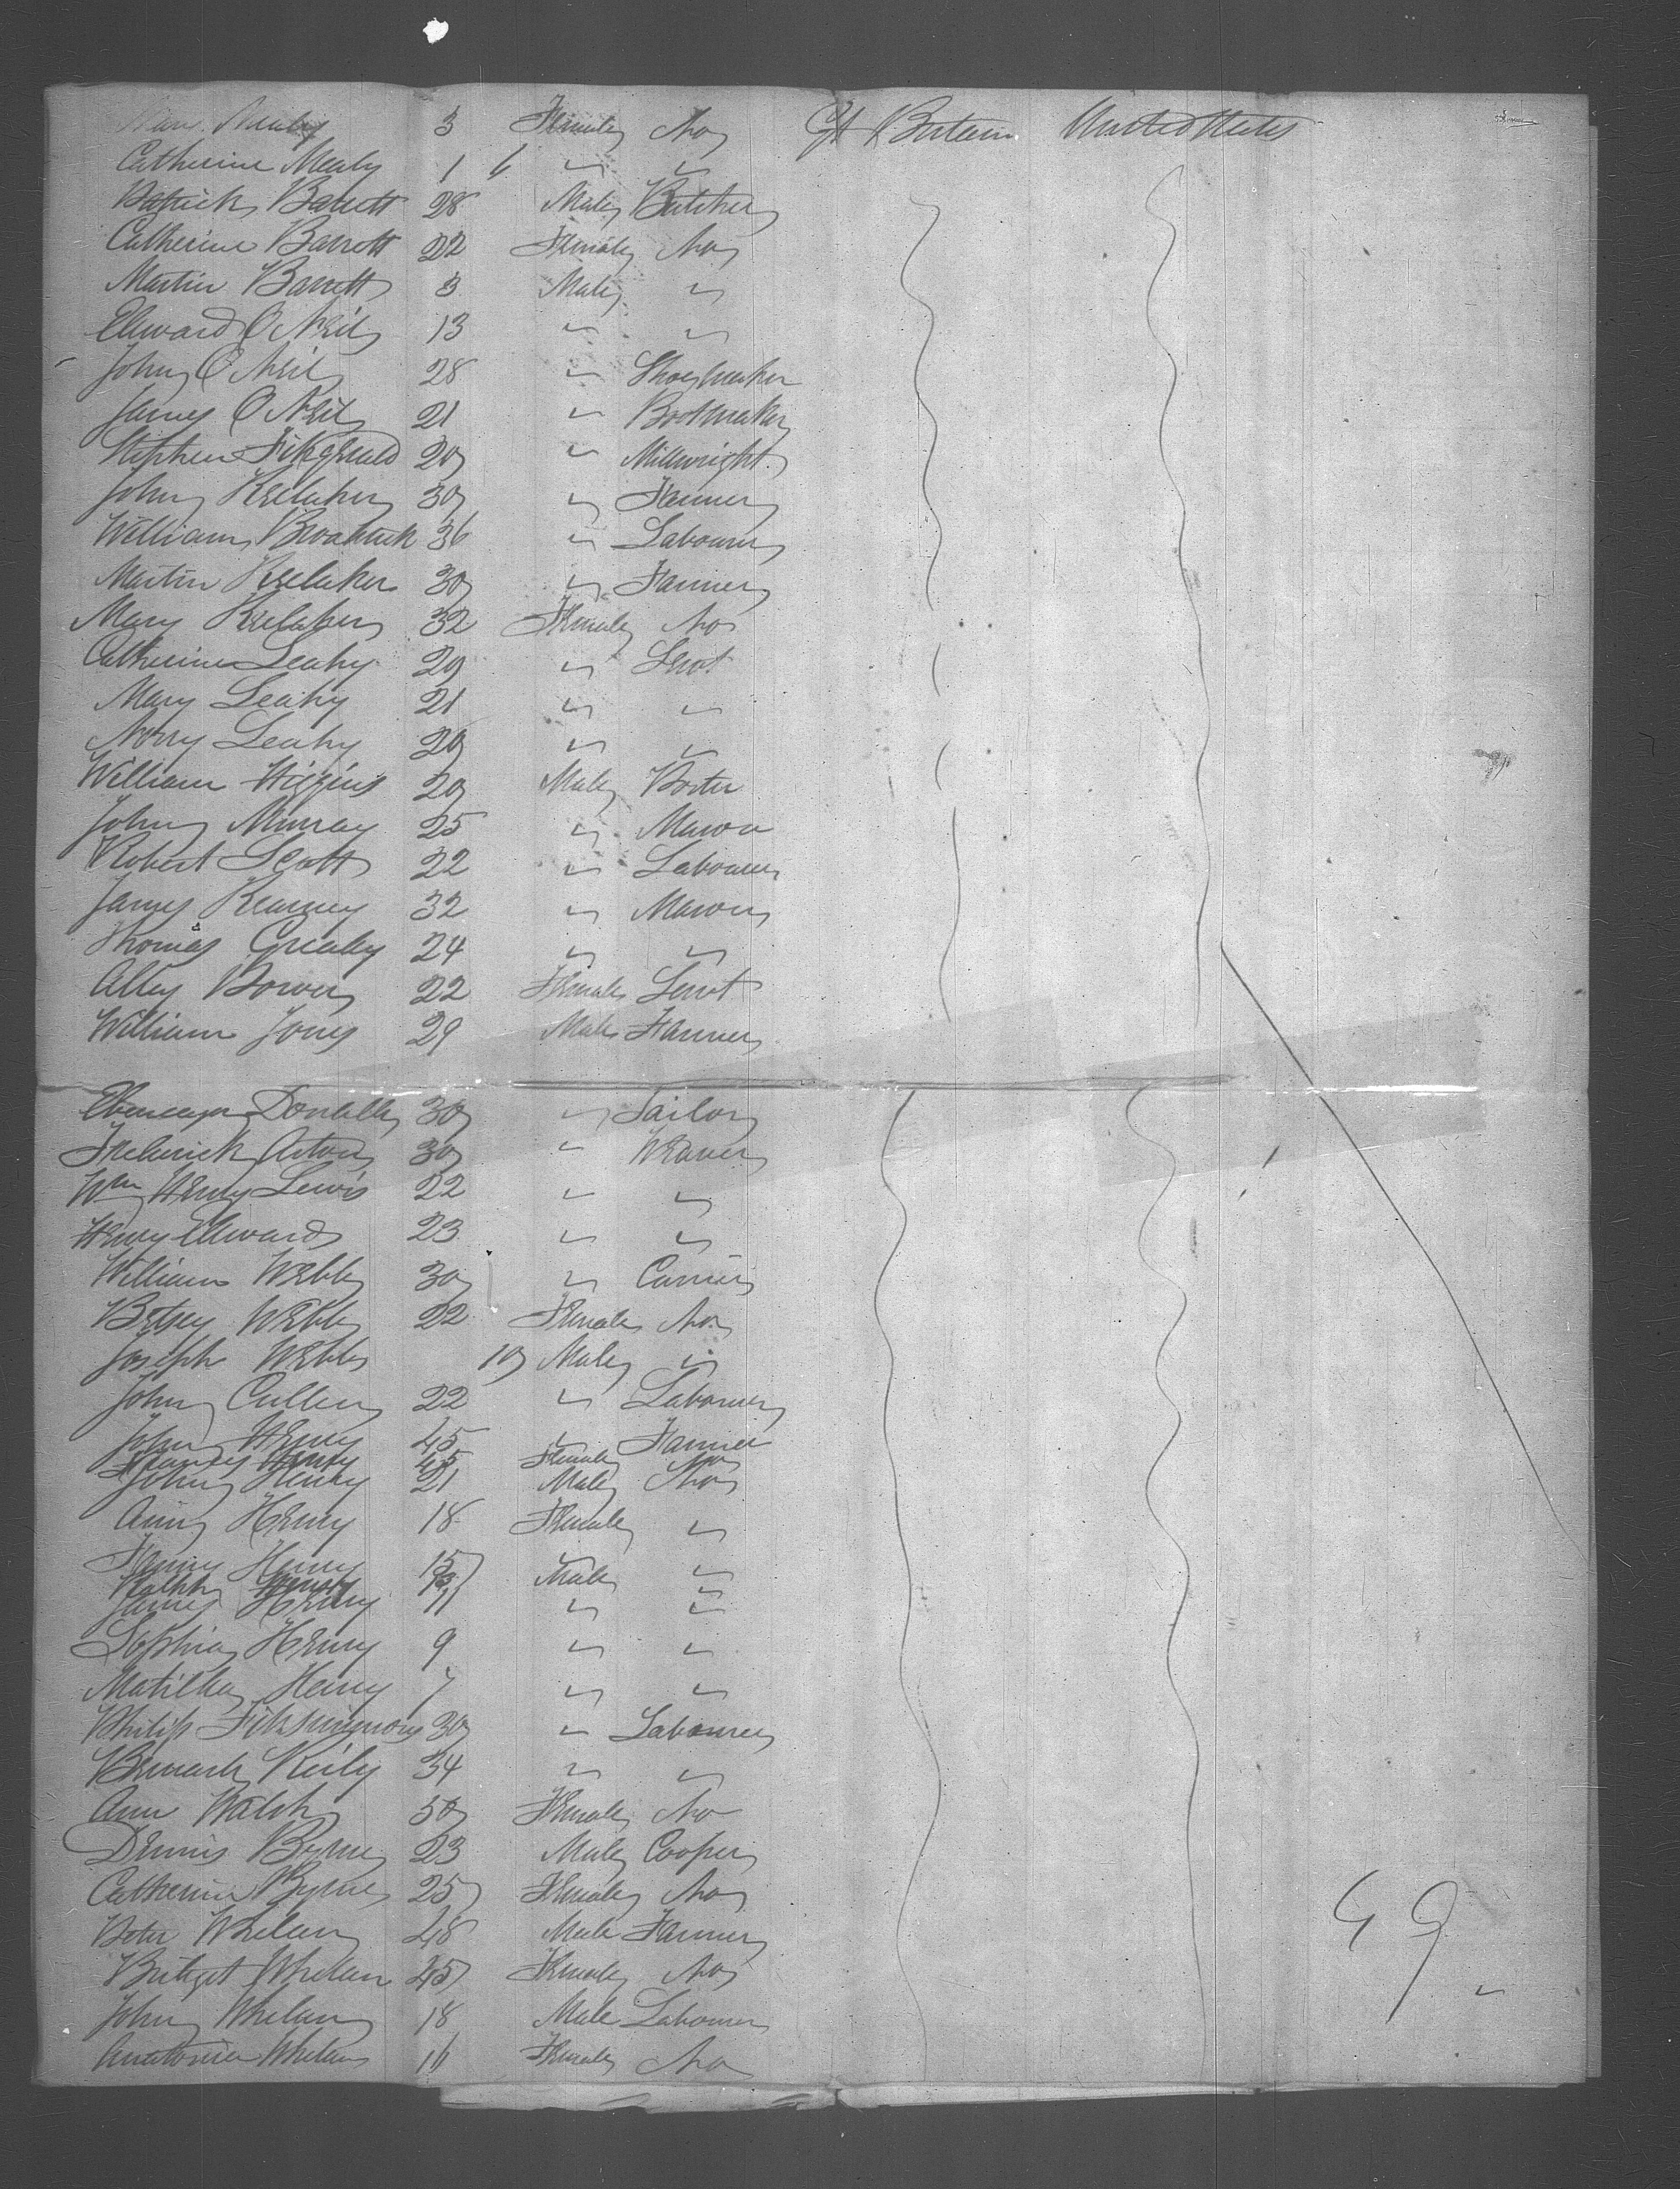 Mary Mealy 3 Female No Gt Britain United States
Catherine Mealy 1 6 " "
Patrick Barrett 28 Male Butcher
Catherine Barrett 22 Female No
Martin Barrett 3 Male "
Edward O'Neil 13 " "
John O'Neil 28 " Shoemaker
James O'Neil 21 " Bootmaker
Stephen Fitzgerald 20 " Millwright
John Kelaher 30 " Farmer
William 36 " Labourer
Martin Kelaher 30 " Farmer
Mary Kelaher 32 Female No
Catherine Leahy 20 " Servt
Mary Leahy 21 " "
Norry Leahy 20 " "
William Higgins 20 Male Porter
John Murray 25 " Mason
Robert Scott 22 " Labourer
James Kearney 32 " Mason
Thomas Grealey 24 " "
Alley Bower 22 Female Servt
William Jones 29 Male Farmer
Ebenezer Donally 30 " Tailor
Frederick Aston 30 " Weaver
Wm Henry Lewis 22 " "
Henry Edwards 23 " "
William Webb 30 " Currier
Betsey Webb 22 Female No
Joseph Webb 10 Male "
John Cullen 22 " Labourer
John Henry 45 " Farmer
Henry 45 Female No
John Henry 21 Male No
Ann Henry 18 Female "
Fanny Henry 15 " "
Ralph Henry 13 Male "
James Henry 11 " "
Sophia Henry 9 " "
Matilda Henry 7 " "
Philip Fitzsimmons 30 " Labourer
Bernard Reily 34 " "
Ann Walsh 50 Female No
Dennis Byrne 23 Male Cooper
Catherine Byrne 25 Female No
Peter Whelan 48 Male Farmer
Bridget Whelan 45 Female No
John Whelan 18 Male Labourer
Whelan 16 Female No
49